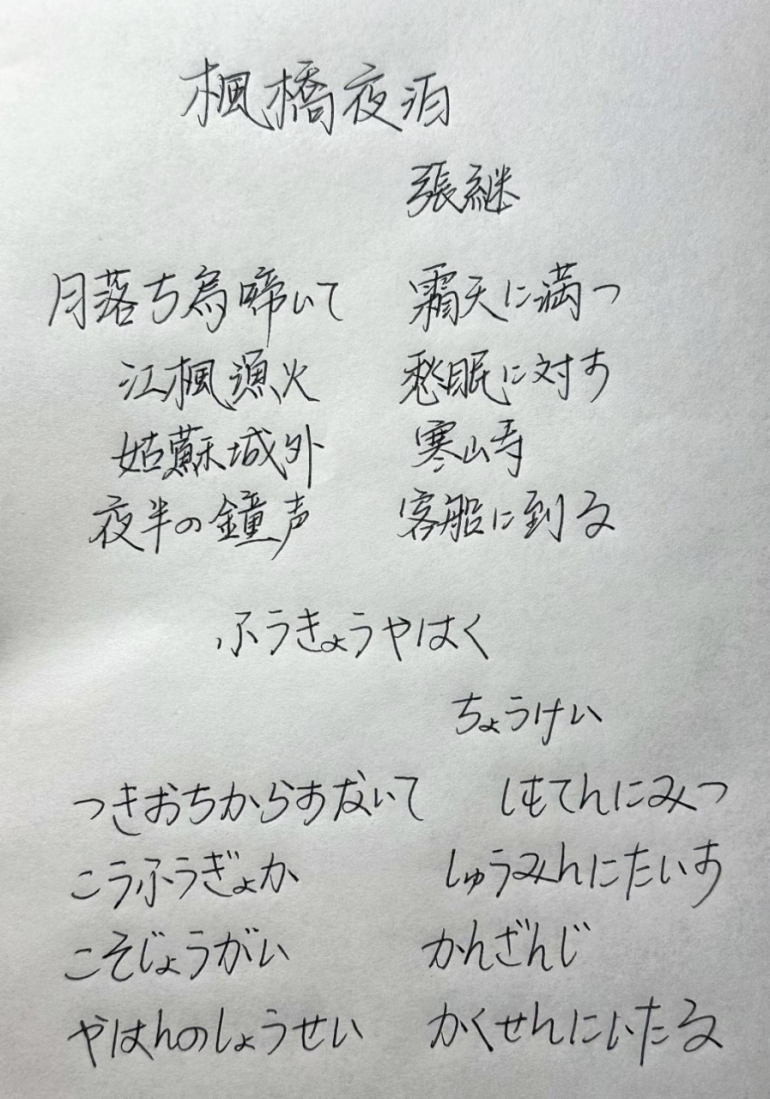 楓橋夜泊
張継
月落ち烏啼いて　霜天に満つ
江楓漁火　愁眠に対す
姑蘇城外　寒山寺
夜半の鐘声　客船に到る
ふうきょうやはく
ちょうけい
つきおちからすないて　しもてんにみつ
こうふうぎょか　しゅうみんにたいす
こそじょうがい　かんざんじ
やはんのしょうせい　かくせんにいたる